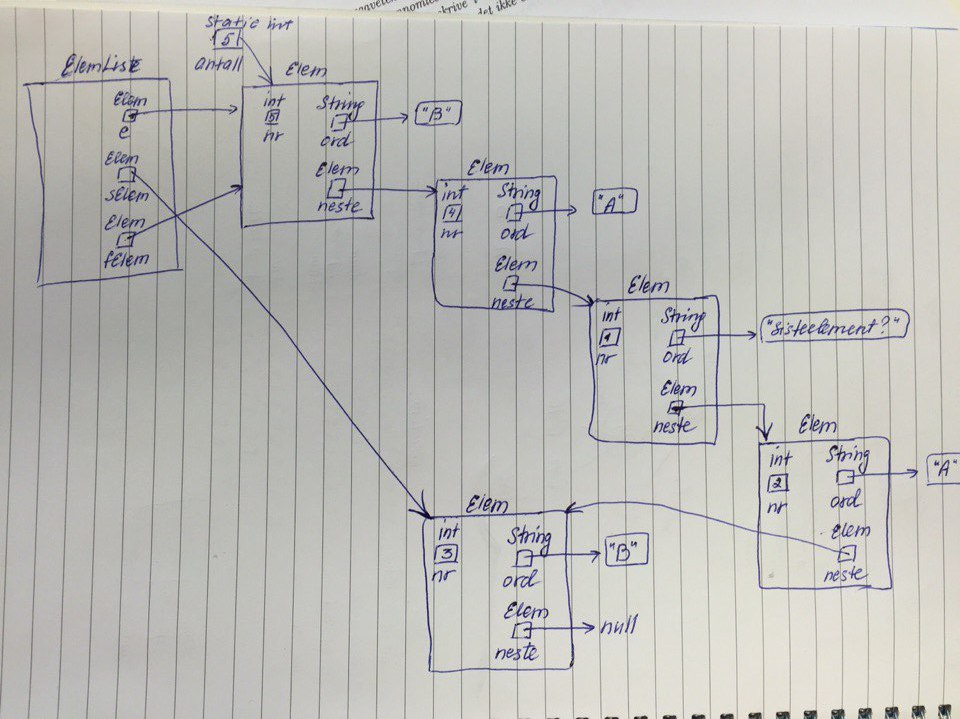 static int
5
antall
ElemListe
Elem
e
Elem
sElem
Elem
fElem
Elem
int
5
nr
String
ord
"B"
Elem
neste
Elem
int
4
nr
String
ord
"A"
Elem
neste
Elem
int
1
nr
String
ord
"Sisteelement?"
Elem
neste
Elem
int
2
nr
String
ord
"A"
Elem
neste
Elem
int
3
nr
String
ord
"B"
Elem
neste
null